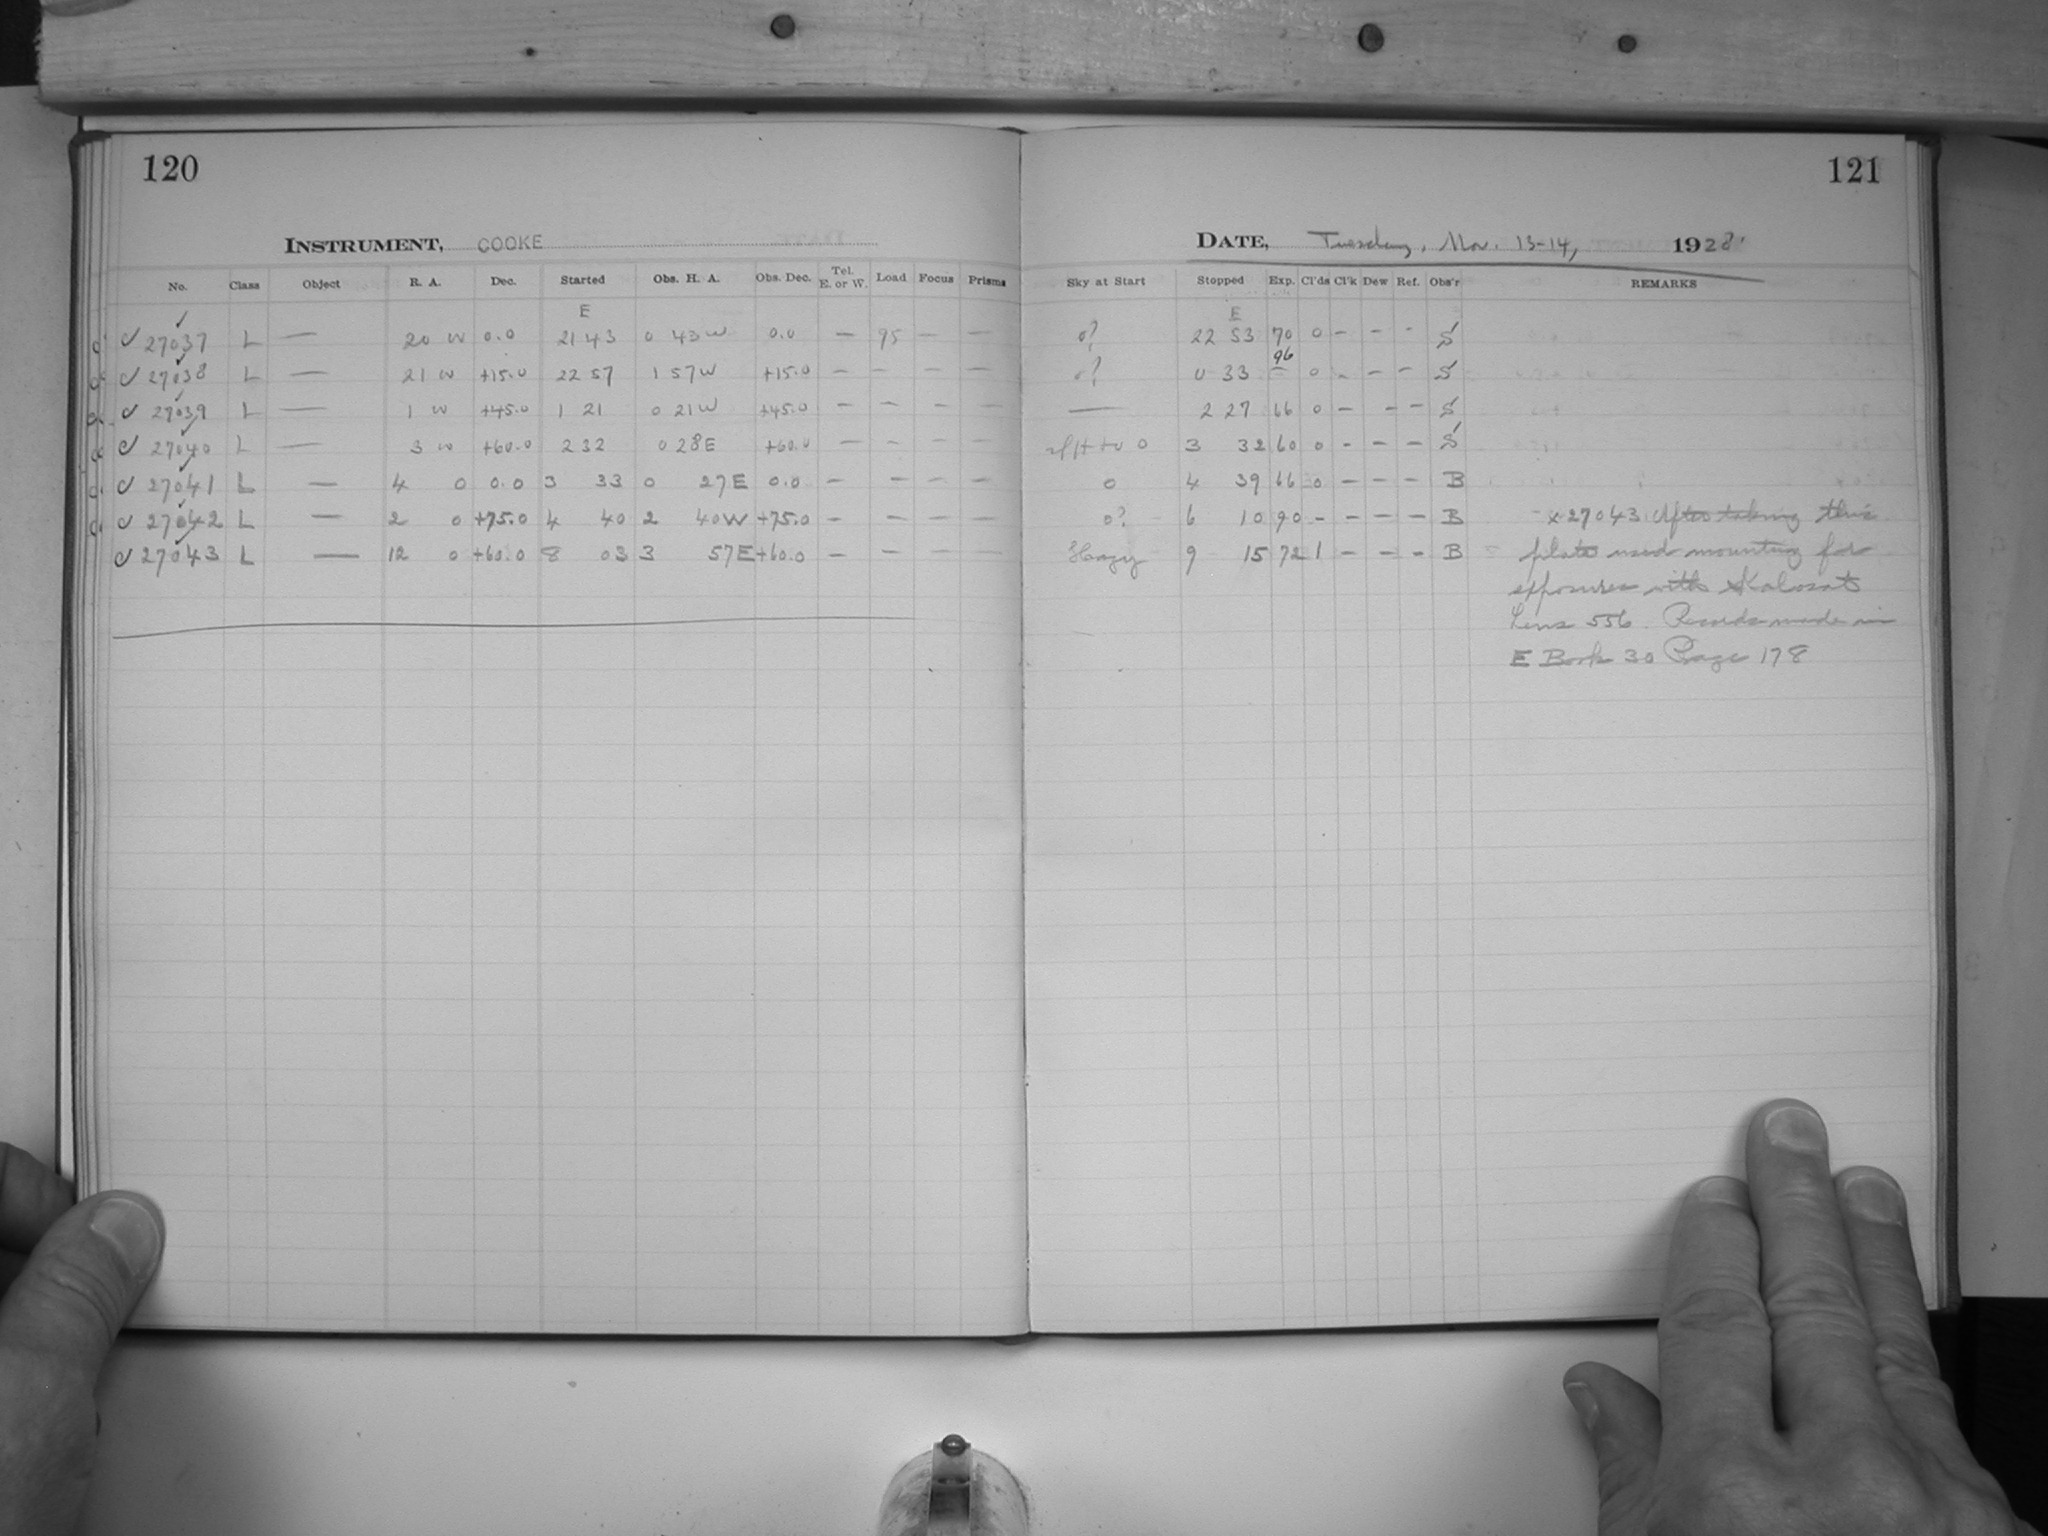 120
INSTRUMENT, COOKE
No. Class Object R. A. Dec. Started Obs. H. A. Obs. Dec. Tel. E. or W. Load Focus Prisms
E
27037 L — 20 W 0.0 21 43 0 43 W 0.0 — 95 — —
27038 L — 21 W +15.0 22 57 1 57 W +15.0 — — — —
27039 L — 1 W +45.0 1 21 0 21 W +45.0 — — — —
27040 L — 3 W +60.0 2 32 0 28 E +60.0 — — — —
27041 L — 4 0 0.0 3 33 0 27 E 0.0 — — — —
27042 L — 2 0 +75.0 4 40 2 40 W +75.0 — — — —
27043 L — 12 0 +60.0 8 03 3 57 E +60.0 — — — —
121
DATE, Tuesday, Nov. 13-14, 1928
Sky at Start Stopped Exp. Cl'ds Cl'k Dew Ref. Obs'r REMARKS
E
0? 22 53 70 0 - - - S
0? 0 33 96 0 - - - S
— 2 27 66 0 - - - S
to 0 3 32 60 0 - - - S
0 4 39 66 0 - - - B
0? 6 10 90 - - - - B x 27043 After taking this
Hazy 9 15 72 1 - - - B plate used mounting for
exposures with
Lens 556. Records made in
E Book 30 Page 178